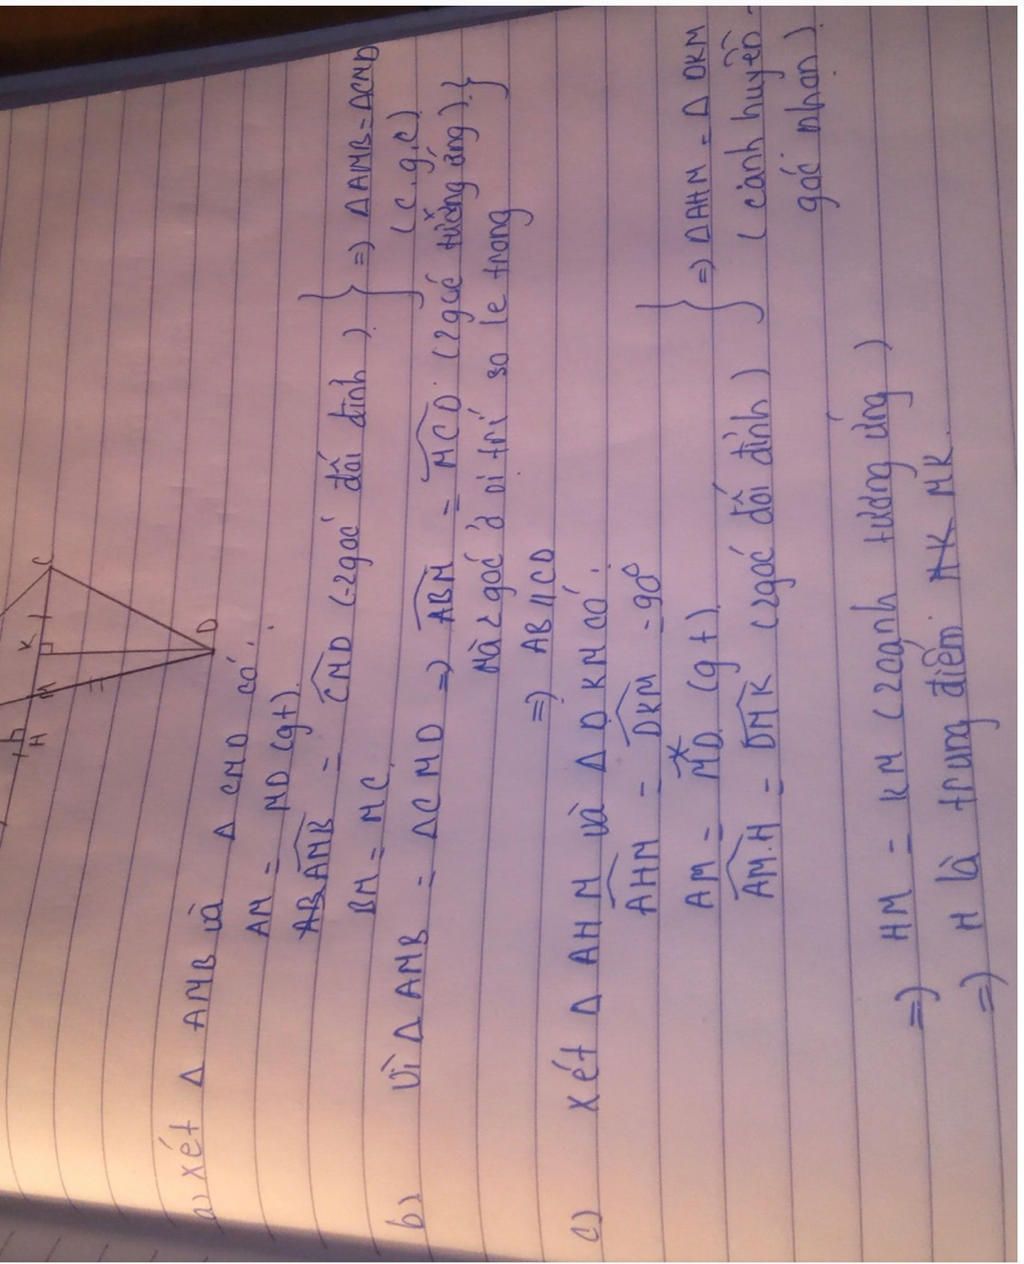 K
C
H
M
D
a) xét Δ AMB và Δ CMD có:
AM = MD (gt).
AB AMB = CMD (2 góc đối đỉnh) } => ΔAMB = ΔCMD
BM = MC (c.g.c)
b) Vì Δ AMB = ΔCMD => ABM = MCD (2góc tương ứng) }
Mà 2 góc ở vị trí so le trong
=> AB//CD
c) xét Δ AHM và Δ DKM có:
AHM = DKM = 90°
AM = MD (gt) } => ΔAHM = Δ DKM
AMH = DMK (2góc đối đỉnh) (cạnh huyền -
góc nhọn)
=> HM = KM (2cạnh tương ứng)
=> H là trung điểm MK.